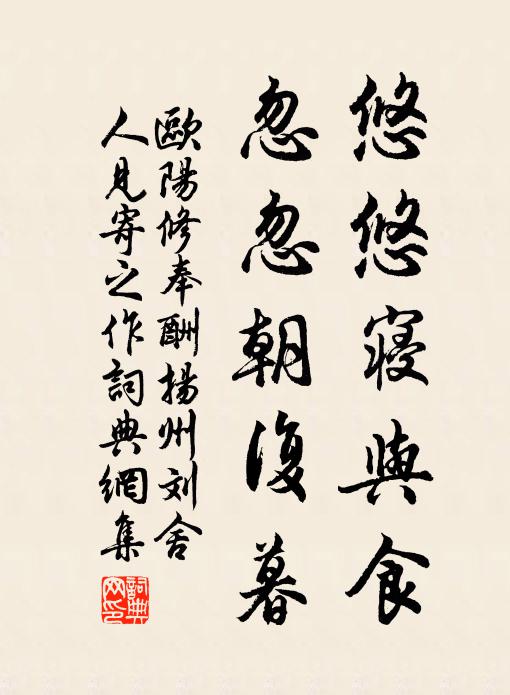 悠悠寝與食
忽忽朝復暮
歐陽修奉酬揚州刘舍
人見寄之作詞典網集
詞典網印